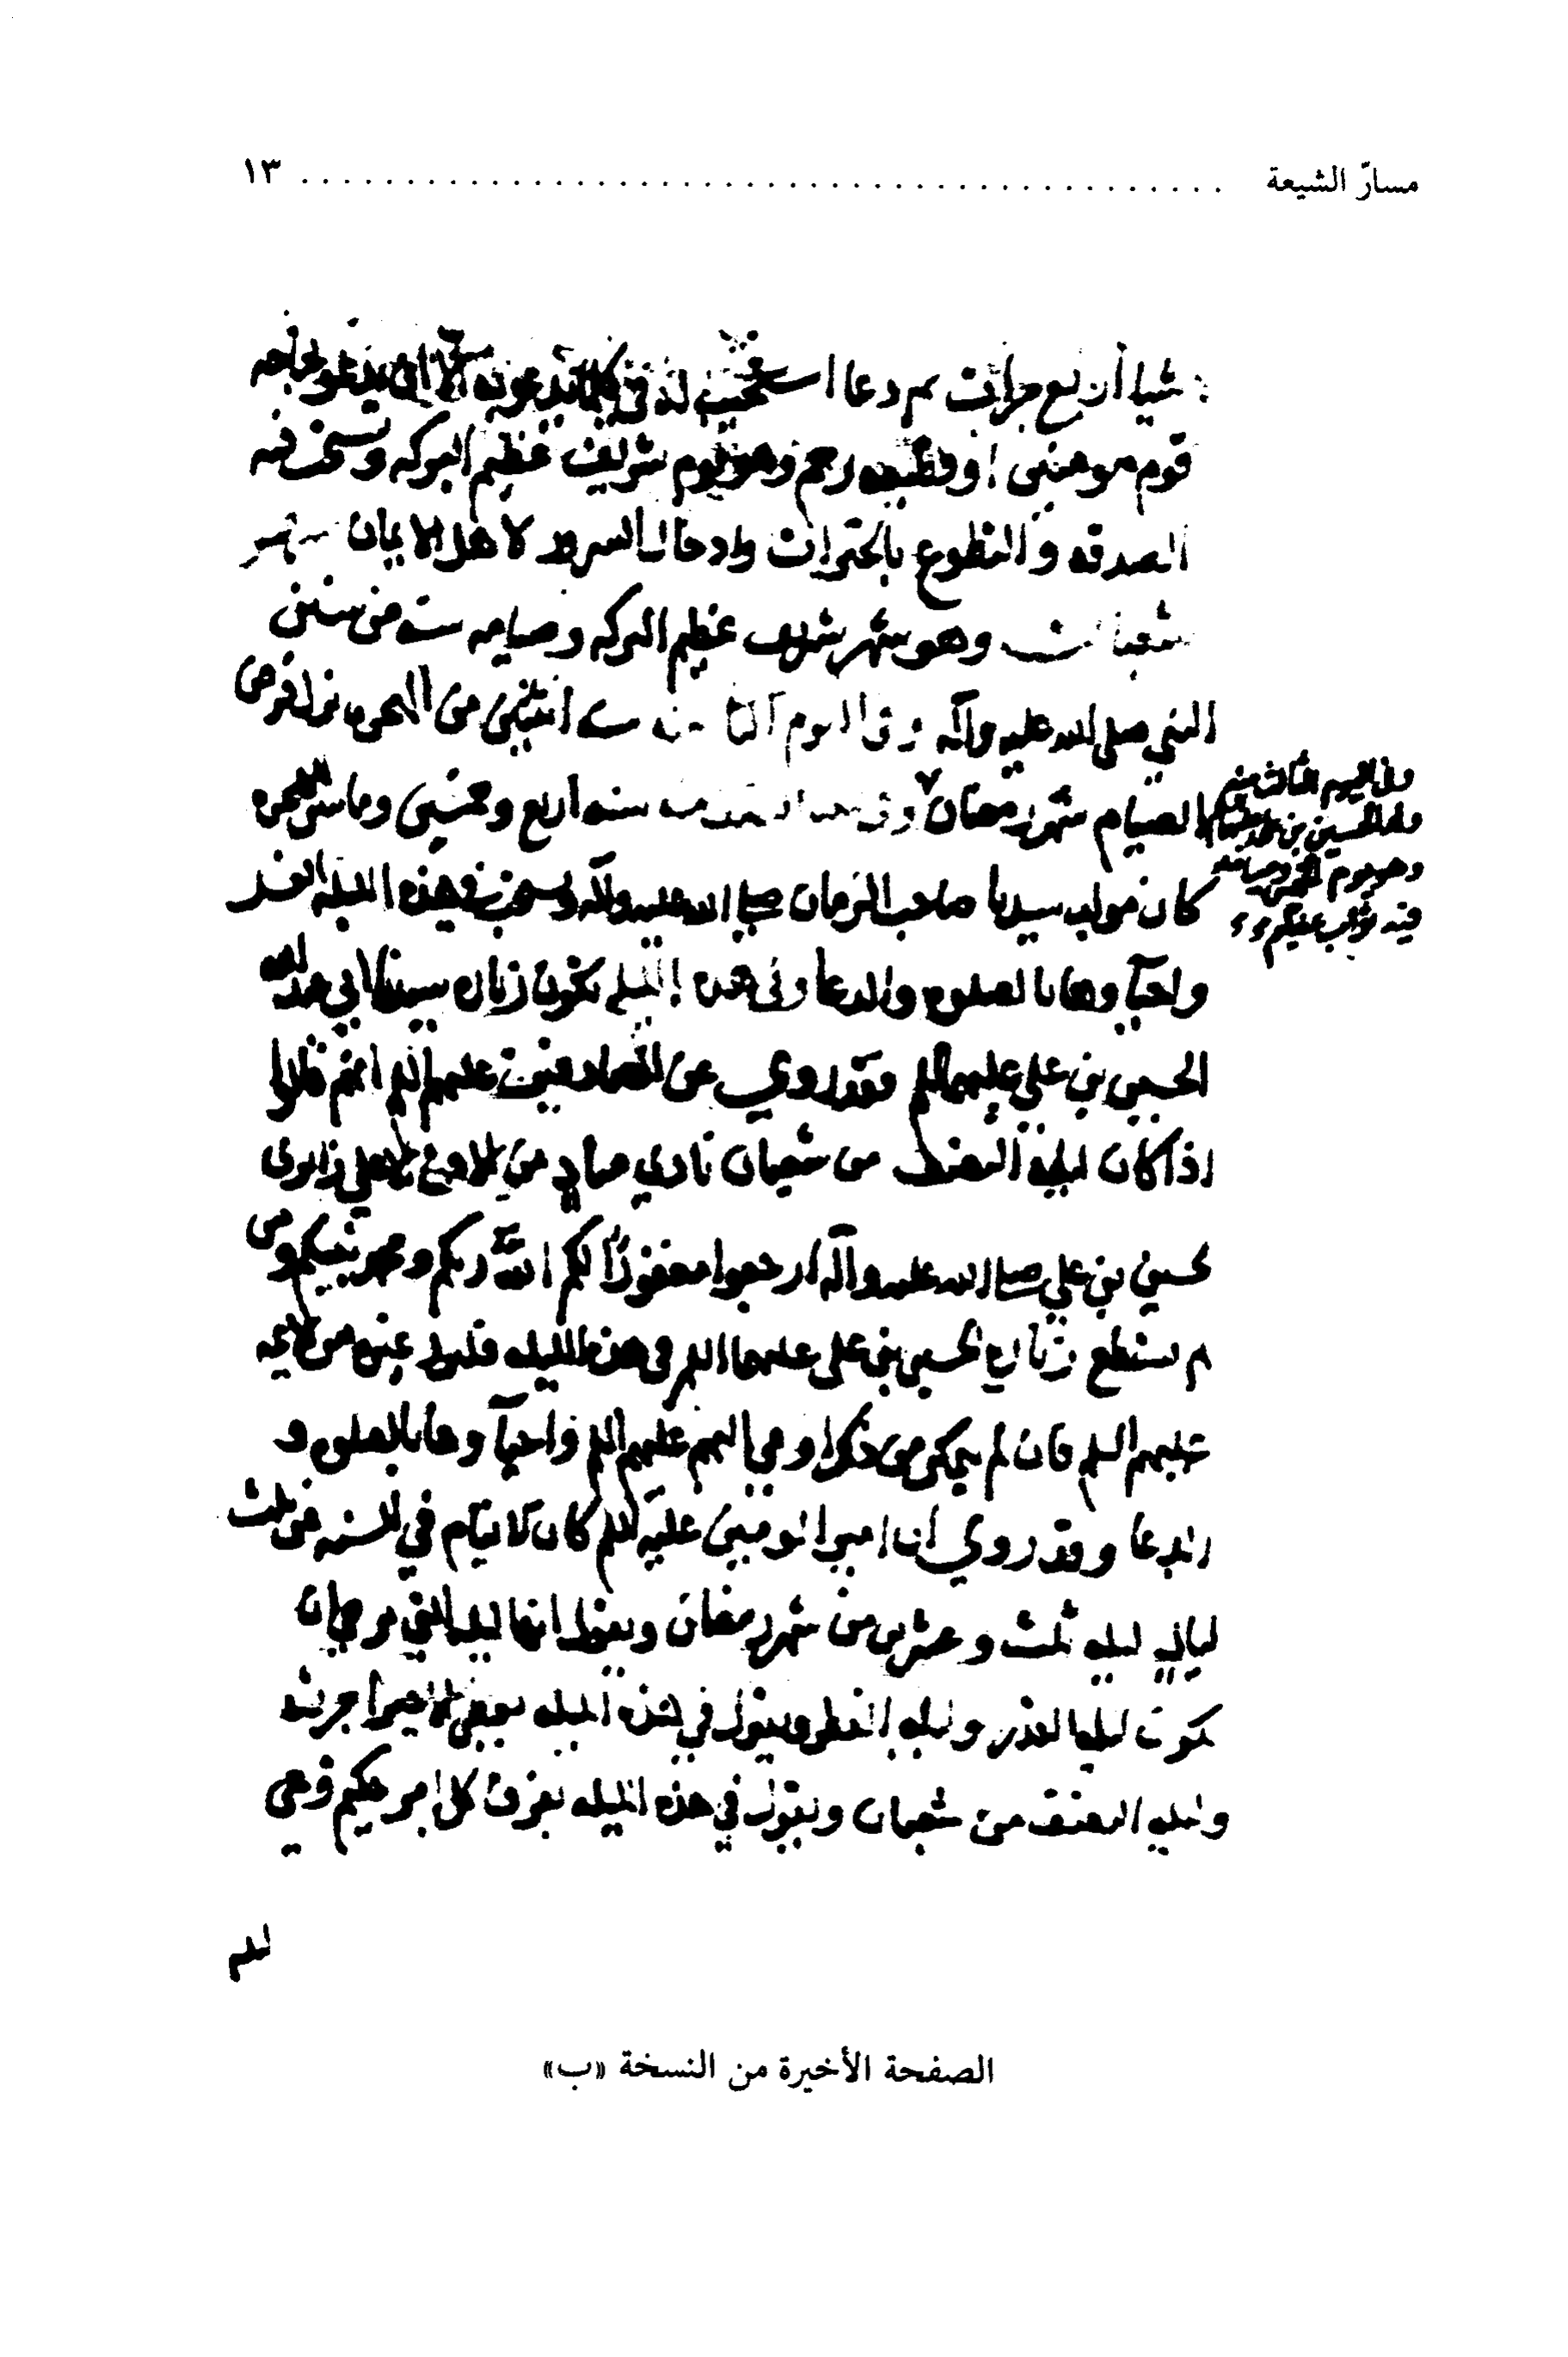 مسارّ الشيعة ........................................ ١٣
شيا أربع مرات ثم دعا استجيب له في كلما يدعو به الا ان يدعو بجايحه
قوم مومنين او قطيعه رحم وهو يوم شريف عظيم البركه ويستحب فيه
الصدقه والتطوع بالخيرات وادخال السرور لاهل الايمان شهر
شعبان وهو شهر شريف عظيم البركه وصيامه سنه من سنن
النبي صلى الله عليه وآله وفي اليوم الثا من سنه اثنتين من الهجره نزل فرض
الصيام شهر رمضان وفي النصف منه سنه اربع وخمسين وماتين للهجره
كان مولد سيدنا صاحب الزمان صلى الله عليه وآله ويستحب في هذه الليله الغسل
واحيآوها بالصلوه والدعا وفي هذه الليله تكون زياره سيدنا ابي عبد الله
الحسين بن علي عليهما السلم فقد روي عن الصادقين عليهم السلم انهم قالوا
اذا كان ليله النصف من شعبان نادي مناد من الافق الاعلى زايرى
لحسين بن علي صلى الله عليه وآله ارجعوا مغفورًا لكم الله ربكم ومحمد نبيكم ومن
لم يستطع زيارة الحسين بن على عليهما السلم في هذه الليله فليزر غيره من الايمه
عليهم السلم فان لم يتمكن من ذلك اومي اليهم عليهم السلم واحيآوها بالصلوه و
الدعا وقد روي ان امير المومنين عليه السلم كان لا ينام في السنه من ثلث
ليالي ليله ثلث وعشرين من شهر رمضان ويقول انها الليله التي يرجى ان
تكون ليله القدر وليله الفطر ويقول في هذه الليله يعطى الاجير اجرته
وليله النصف من شعبان ويقول في هذه الليله يفرق كل امر حكيم وهي
وفي اليوم الثالث منه
ولد الحسين بن علي
وهو يوم
فيه ثواب عظيم
الصفحة الأخيرة من النسخة «ب»